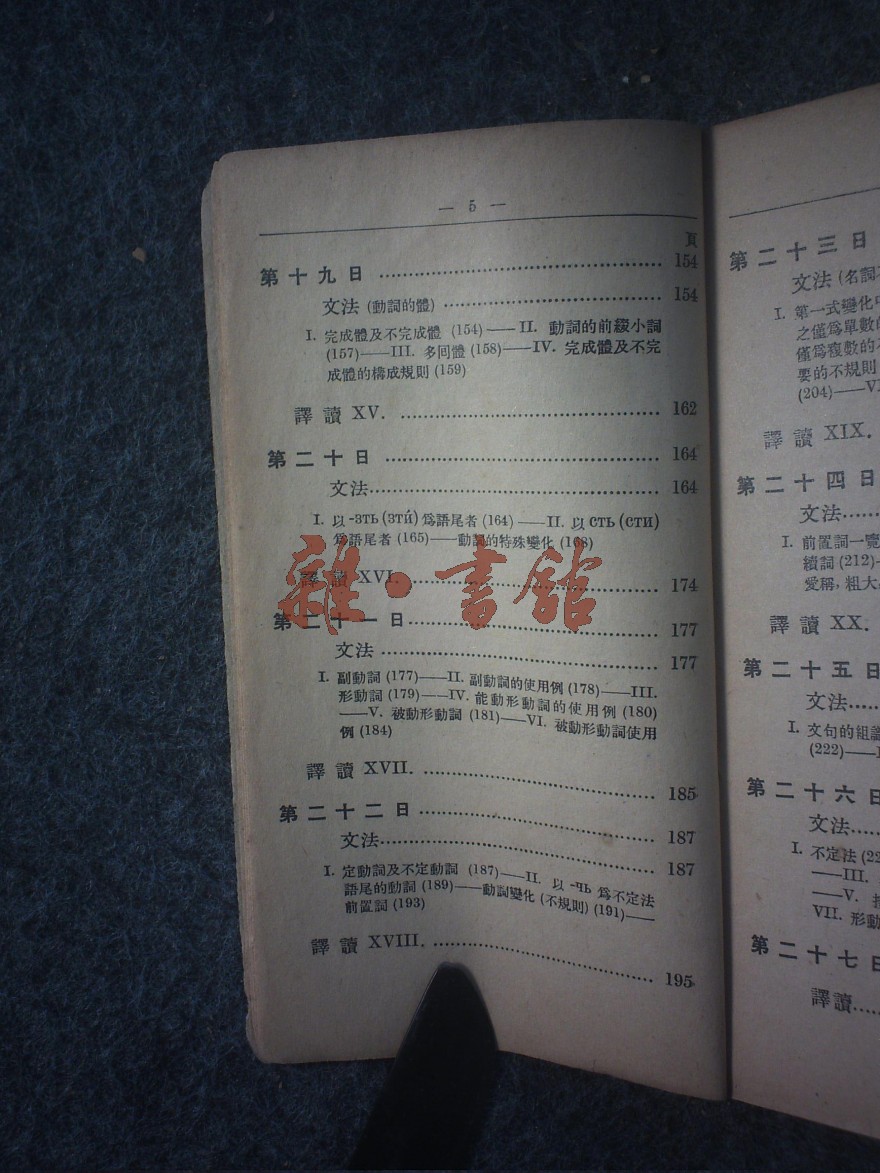 — 5 —
頁
第十九日 154
文法 (動詞的體) 154
I. 完成體及不完成體 (154)——II. 動詞的前綴小詞
(157)——III. 多回體 (158)——IV. 完成體及不完
成體的構成規則 (159)
譯讀 XV. 162
第二十日 164
文法 164
I. 以 -зть (зти́) 爲語尾者 (164)——II. 以 сть (сти)
爲語尾者 (165)——動詞的特殊變化 (168)
譯讀 XVI. 174
第二十一日 177
文法 177
I. 副動詞 (177)——II. 副動詞的使用例 (178)——III.
形動詞 (179)——IV. 能動形動詞的使用例 (180)
——V. 被動形動詞 (181)——VI. 被動形動詞使用
例 (184)
譯讀 XVII. 185
第二十二日 187
文法 187
I. 定動詞及不定動詞 (187)——II. 以 -чь 爲不定法
語尾的動詞 (189)——動詞變化 (不規則) (191)——
前置詞 (193)
譯讀 XVIII. 195
雜·書館
第二十三日
文法 (名詞
I. 第一式變化
之僅爲單數的
僅爲複數的
要的不規則
(204)——V
譯讀 XIX.
第二十四日
文法
I. 前置詞一覽
續詞 (212)
愛稱，粗大
譯讀 XX.
第二十五日
文法
I. 文句的組
(222)——
第二十六日
文法
I. 不定法 (22
——III.
——V.
VII. 形動
第二十七日
譯讀